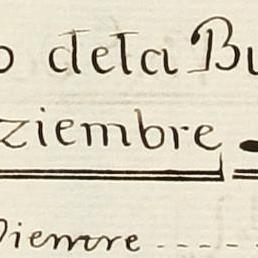 o dela Bu
ziembre
Viemre